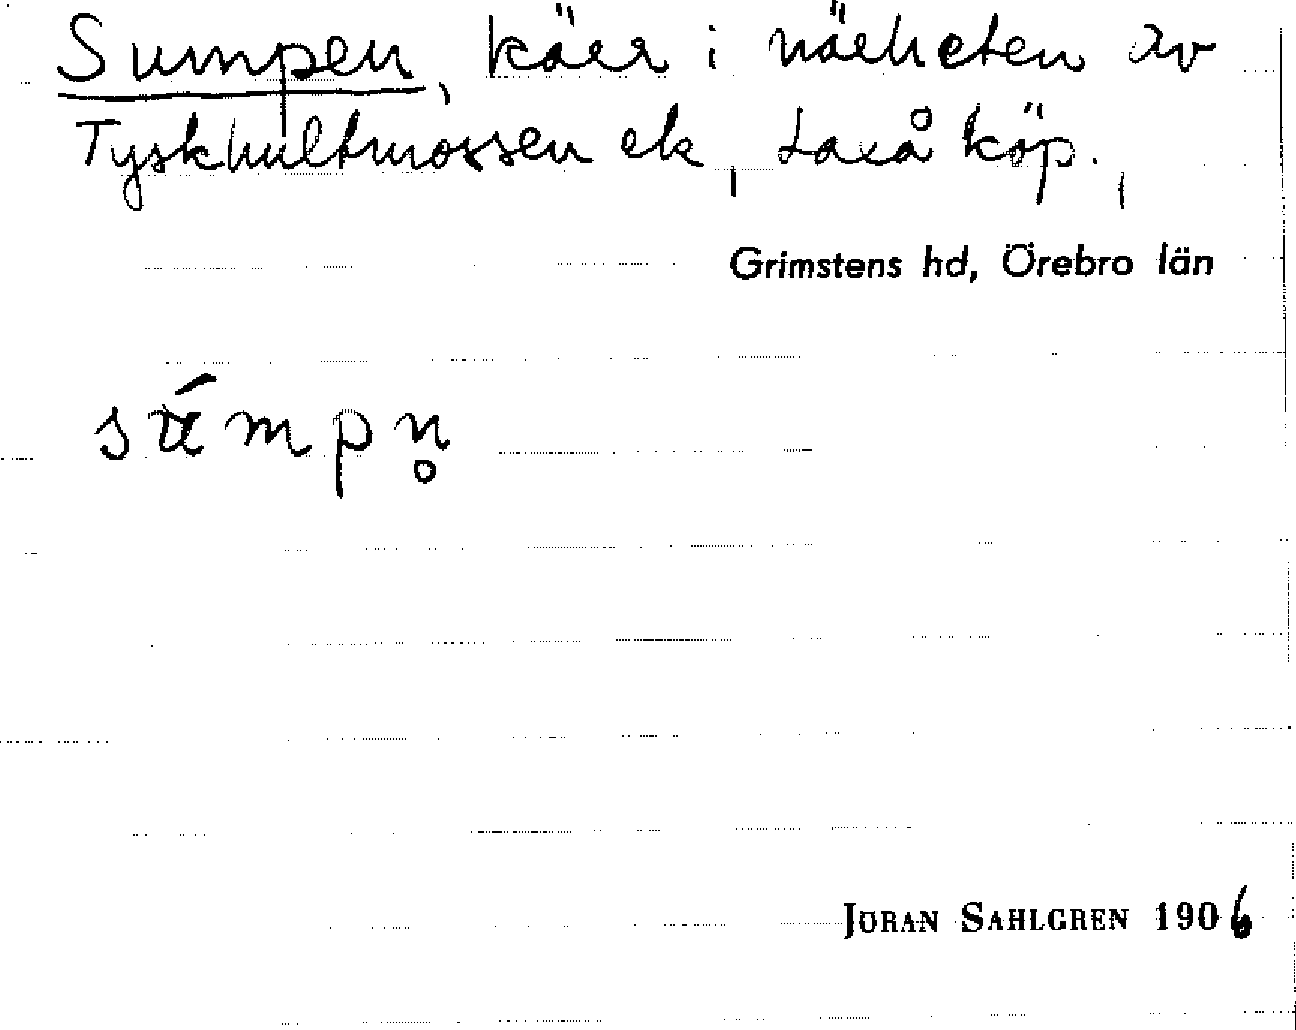 Sumpen, kärr i närheten av
Tyskhultmossen ek, Laxå köp.,
Grimstens hd, Örebro län
Jöran Sahlgren 1906